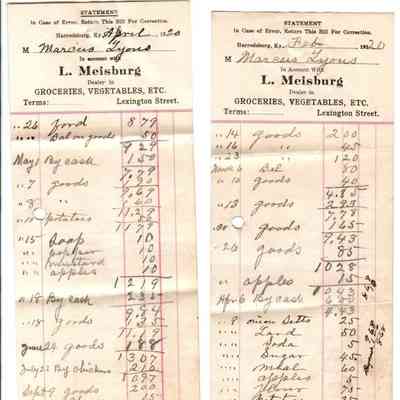 STATEMENT
In Case of Error, Return This Bill For Correction.
Harrodsburg, Ky. April 1920
M Marcus Lyons
In account with
L. Meisburg
Dealer in
GROCERIES, VEGETABLES, ETC.
Terms: Lexington Street.
" 26 food 8 79
" " Bal on goods 50
9 29
May 1 By cash 1 50
7 79
" 7 goods 1 90
9 69
" 8 " 1 60
11 29
" 10 potatoes 50
11 79
" 15 soap 10
" pepper 10
" mustard 10
" apples 10
12 19
" 18 By cash
9 84
" 18 goods
11 19
June 24 goods 1 88
13 07
July 22 By chickens 2 10
Sept 9 goods 2 00
15
STATEMENT
In Case of Error, Return This Bill For Correction.
Harrodsburg, Ky. Feb 1920
M Marcus Lyons
In Account With
L. Meisburg
Dealer in
GROCERIES, VEGETABLES, ETC.
Terms: Lexington Street.
" 14 goods 2 00
" 16 " 45
" 23 " 1 20
March 6 Bal 80
" 12 goods 40
4 85
" 13 goods 2 93
7 78
goods 1 65
9 43
" 26 goods 85
10 28
" apples 15
10 43
Apr 6 By cash 6 00
4 43
" 9 onion Setts 25
" Lard 50
" Soda 5
" Sugar 45
" Meal 60
" apples 5
" Flour 75
" Potatoes